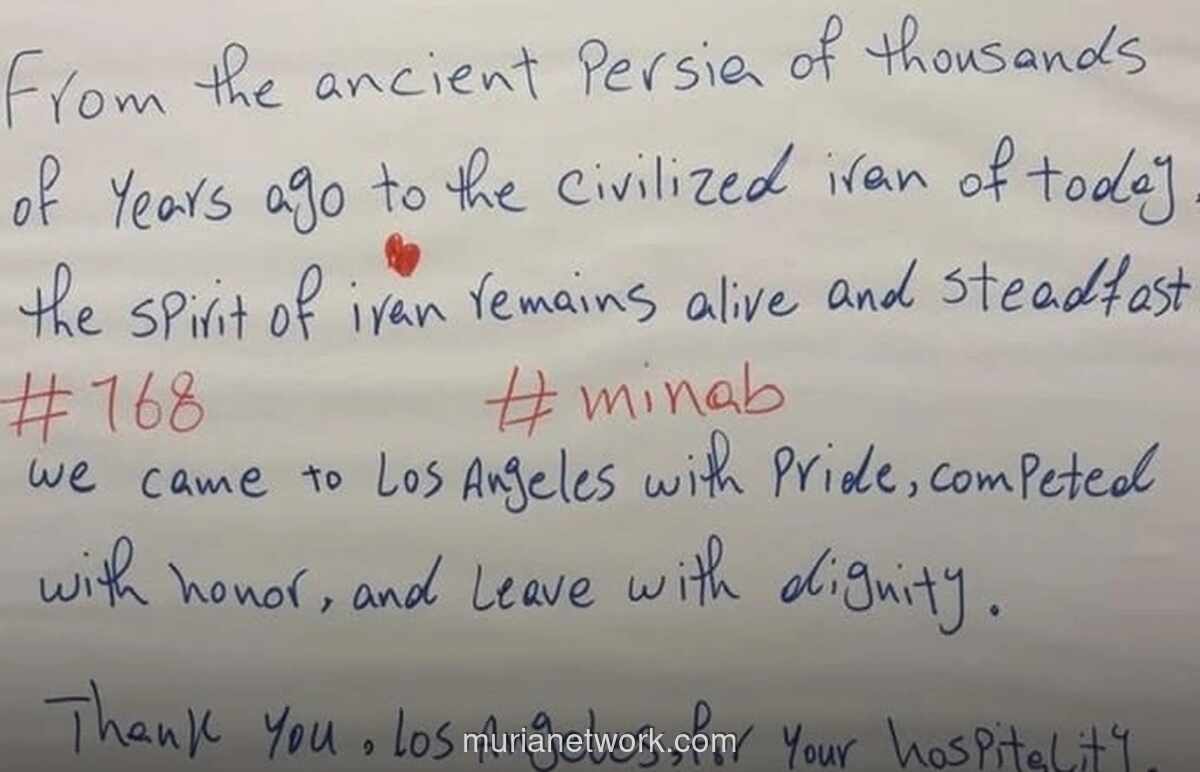 From the ancient Persia of thousands
of Years ago to the civilized iran of today.
the spirit of iran remains alive and steadfast
#168 #minab
we came to Los Angeles with Pride, competed
with honor, and Leave with dignity.
Thank you, Los Angeles, for your hospitality.
murianetwork.com